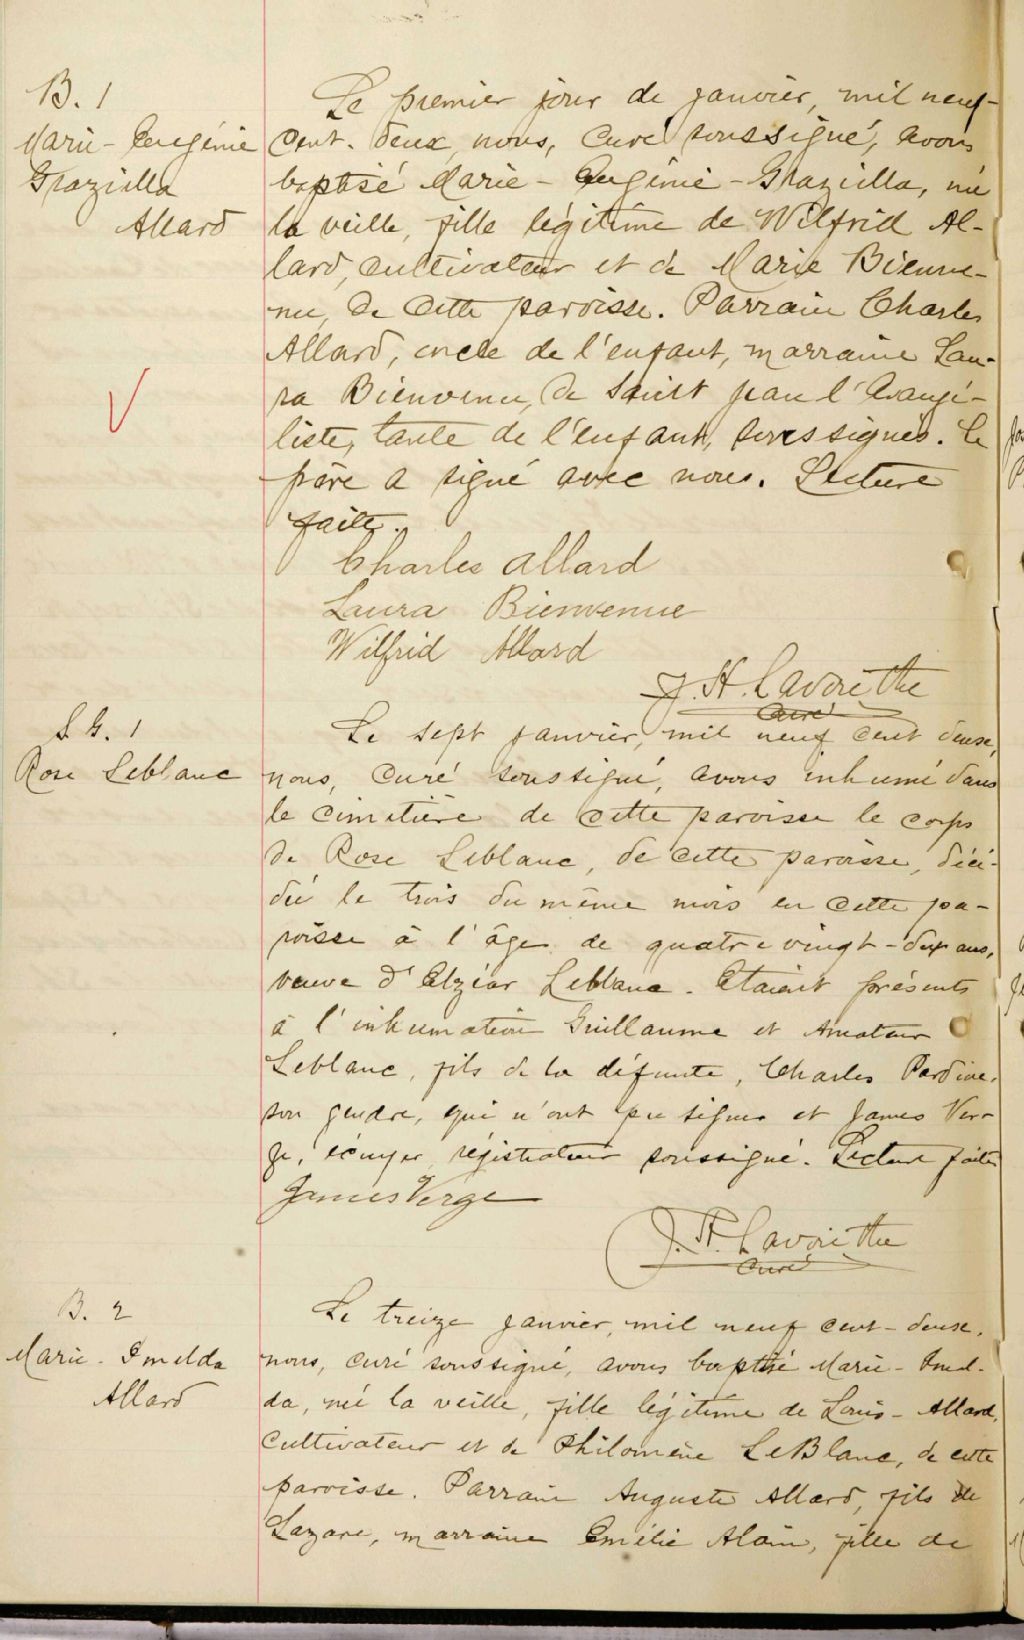 B. 1
Marie-Eugénie
Graziella
Allard
Le premier jour de janvier, mil neuf-
cent-deux, nous, curé soussigné, avons
baptisé Marie-Eugénie-Graziella, née
la veille, fille légitime de Wilfrid Al-
lard, cultivateur et de Marie Bienve-
nue, de cette paroisse. Parrain Charles
Allard, oncle de l'enfant, marraine Lau-
ra Bienvenue, de Saint Jean l'Evangé-
liste, tante de l'enfant, soussignés. Le
père a signé avec nous. Lecture
faite.
Charles Allard
Laura Bienvenue
Wilfrid Allard
J. H. Lavoie Ptre
Curé
S. 1
Rose Leblanc
Le sept janvier, mil neuf cent deux,
nous, curé soussigné, avons inhumé dans
le cimetière de cette paroisse le corps
de Rose Leblanc, de cette paroisse, décé-
dée le trois du même mois en cette pa-
roisse à l'âge de quatre vingt-deux ans,
veuve d'Elzéar Leblanc. Etaient présents
à l'inhumation Guillaume et Amateur
Leblanc, fils de la défunte, Charles
son gendre, qui n'ont pu signer et James Ver-
ge, écuyer, régistrateur soussigné. Lecture faite
James Verge
J. H. Lavoie Ptre
Curé
B. 2
Marie-Imelda
Allard
Le treize janvier, mil neuf cent-deux,
nous, curé soussigné, avons baptisé Marie-Imel-
da, née la veille, fille légitime de Louis-Allard,
cultivateur et de Philomène LeBlanc, de cette
paroisse. Parrain Auguste Allard, fils de
Lazare, marraine Emélie Alain, fille de